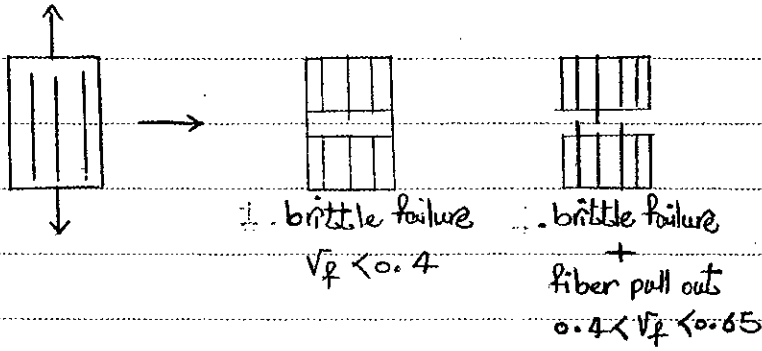 1. brittle failure
V_f < 0.4
. brittle failure
+
fiber pull out
0.4 < V_f < 0.65